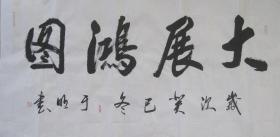 大展鴻图
歲次癸巳冬于明书